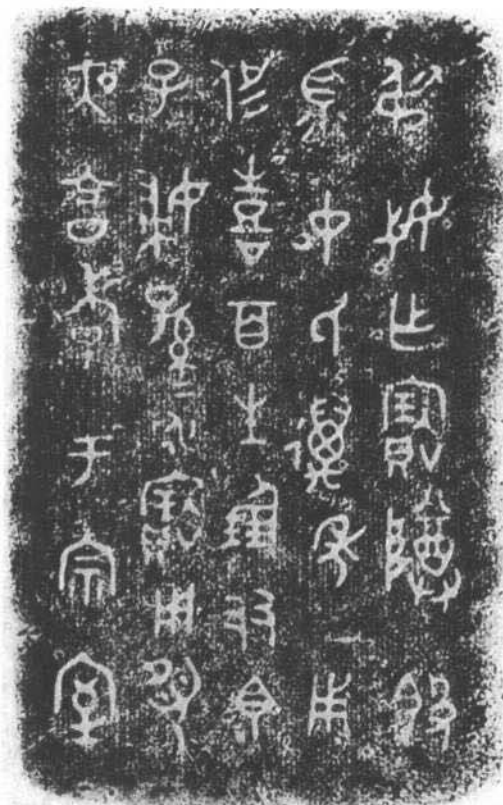 弔乍寶障𣪘
眔中氏萬年用
侃喜百生倗友眔
子婦子孫永寶用夙
夜亯孝于宗室